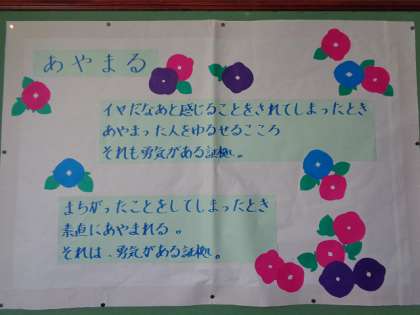 あやまる
イヤだなあと感じることをされてしまったとき
あやまった人をゆるせるこころ
それも勇気がある証拠。
まちがったことをしてしまったとき
素直にあやまれる。
それは、勇気がある証拠。